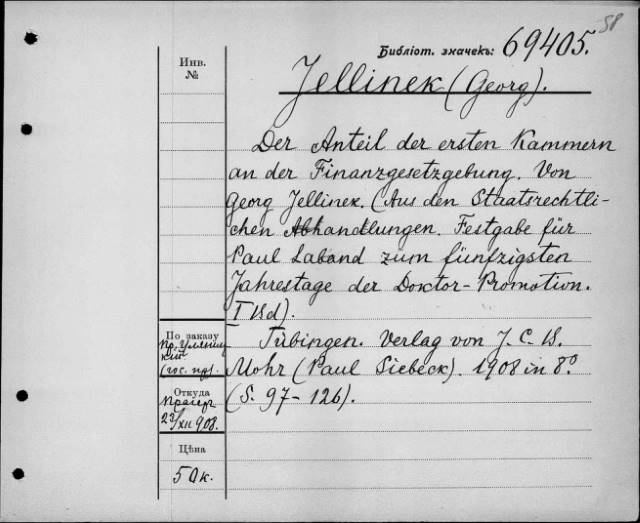 58
Библіот. значекъ: 69405.
Инв.
№
Jellinek (Georg).
Der Anteil der ersten Kammern
an der Finanzgesetzgebung. Von
Georg Jellinek. (Aus den Staatsrechtli-
chen Abhandlungen. Festgabe für
Paul Laband zum fünfzigsten
Jahrestage der Doktor-Promotion.
I Bd).
Tübingen. Verlag von J. C. B.
Mohr (Paul Siebeck). 1908 in 8°
(S. 97-126).
По заказу
пр.
(гос. пр).
Откуда
23/XII 908.
Цѣна
50к.